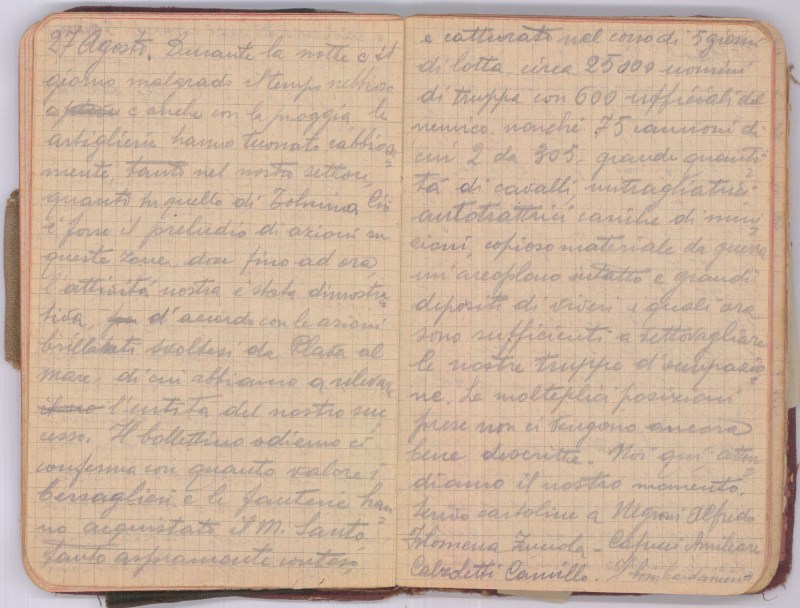 27 Agosto. Durante la notte e il
giorno malgrado il tempo nebbioso
e anche con la pioggia le
artiglierie hanno tuonato rabbiosa=
mente, tanto nel nostro settore,
quanto in quello di Tolmino. Ciò
è forse il preludio di azioni su
queste zone, dove fino ad ora,
l'attività nostra è stata dimostra=
tiva, d'accordo con le azioni
brillanti svoltesi da Plava al
mare, di cui abbiamo a rilevare
l'entità del nostro suc
cesso. Il bollettino odierno ci
conferma con quanto valore i
bersaglieri e le fanterie han=
no acquistato il M. Santo
tanto aspramente conteso,
e catturato nel corso di 5 giorni
di lotta, circa 25000 uomini
di truppa con 600 ufficiali del
nemico, nonché 75 cannoni di
cui 2 da 305, grande quanti=
tà di cavalli mitragliatrici
autotrattrici cariche di muni=
zioni, copioso materiale da guerra
un'areoplano intatto e grandi
depositi di viveri i quali ora
sono sufficienti a vettovagliare
le nostre truppe d'occupazio=
ne. Le molteplici posizioni
prese non ci vengono ancora
bene descritte. Noi qui atten=
diamo il nostro momento.
Scrivo cartoline a Negroni Alfredo
Filomena - Capucci Amilcare
Calzetti Camillo. Il bombardament